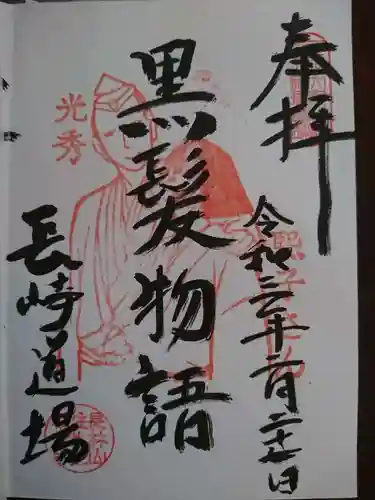 奉拝
令和三年二月二十七日
黒髪物語
光秀
長崎道場